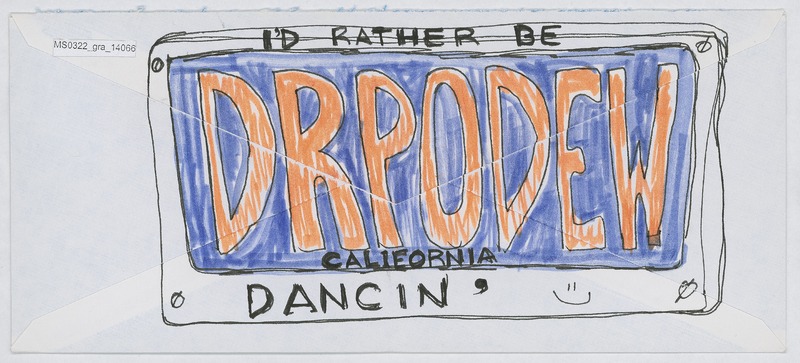 MS0322_gra_14066
I'D RATHER BE
DRPODEW
CALIFORNIA
DANCIN'